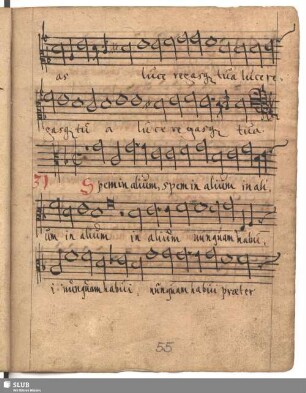 as luce regasq tua luce re-
gasq tu a luce re gasq tua.
37 Spem in alium, spem in alium in ali
um in alium in alium nunquam habu,
i nunquam habui, nunquam habui præter
55
SLUB